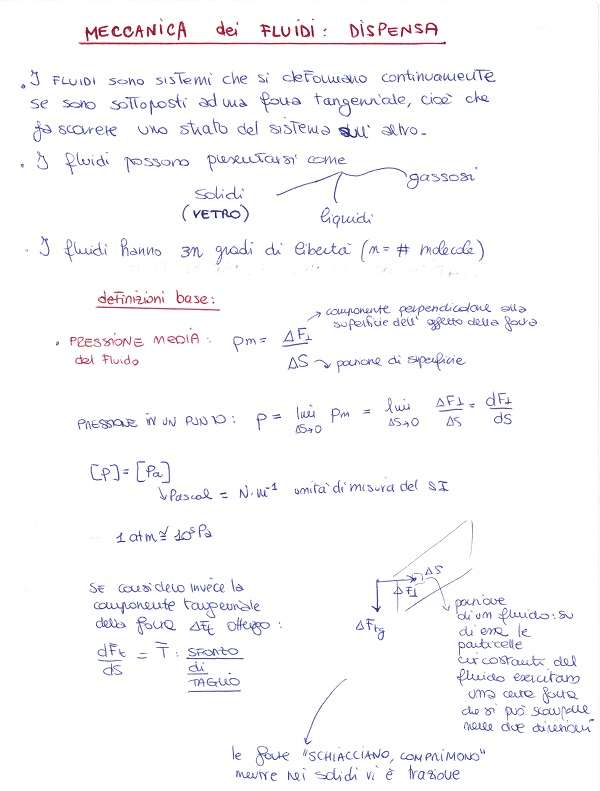 MECCANICA dei FLUIDI: DISPENSA
. I FLUIDI sono sistemi che si deformano continuamente
se sono sottoposti ad una forza tangenziale, cioè che
fa scorrere uno strato del sistema sull' altro.
. I fluidi possono presentarsi come
solidi
(VETRO)
liquidi
gassosi
. I fluidi hanno 3n gradi di libertà (n = # molecole)
definizioni base:
. PRESSIONE MEDIA:
del Fluido
pm = ΔF⊥ / ΔS
→ componente perpendicolare alla
superficie dell' oggetto della forza
→ porzione di superficie
PRESSIONE IN UN PUNTO: p = lim ΔS→0 pm = lim ΔS→0 ΔF⊥/ΔS = dF⊥/dS
[p] = [Pa]
↳ Pascal = N·m⁻¹ unità di misura del SI
1 atm ≅ 10⁵ Pa
SE considero invece la
componente tangenziale
della forza ΔFt ottengo:
dFt/dS = T: SFORZO
di
TAGLIO
ΔS
ΔF⊥
ΔFtg
porzione
di un fluido: su
di essa le
particelle
circostanti del
fluido esercitano
una certa forza
che si può scomporre
nelle due direzioni
le forze "SCHIACCIANO, COMPRIMONO"
mentre nei solidi vi è trazione